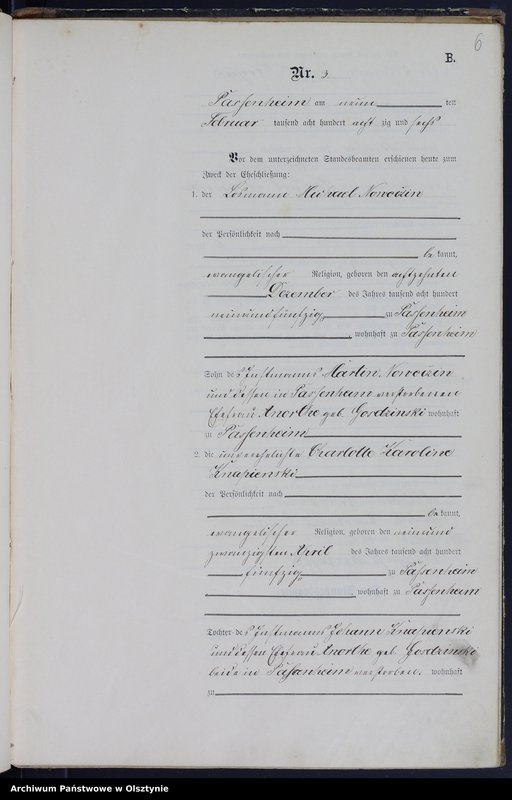 6
B.
Nr. 3
Passenheim am neun ten
Februar tausend acht hundert acht zig und sechs
Vor dem unterzeichneten Standesbeamten erschienen heute zum
Zweck der Eheschließung:
1. der Losmann Michael Nowozin
der Persönlichkeit nach
be kannt,
evangelischer Religion, geboren den achtzehnten
Dezember des Jahres tausend acht hundert
neunundfünfzig zu Passenheim
, wohnhaft zu Passenheim
Sohn des Instmanns Martin Nowozin
und dessen in Passenheim verstorbenen
Ehefrau Anorthe geb. Gordzinski wohnhaft
zu Passenheim
2. die unverehelichte Charlotte Karoline
Knapienski
der Persönlichkeit nach
be kannt,
evangelischer Religion, geboren den neunund
zwanzigsten April des Jahres tausend acht hundert
fünfzig zu Passenheim
, wohnhaft zu Passenheim
Tochter des Instmanns Johann Knapienski
und dessen Ehefrau Anorthe geb. Gordzinski
beide in Passenheim verstorben. wohnhaft
zu
Archiwum Państwowe w Olsztynie